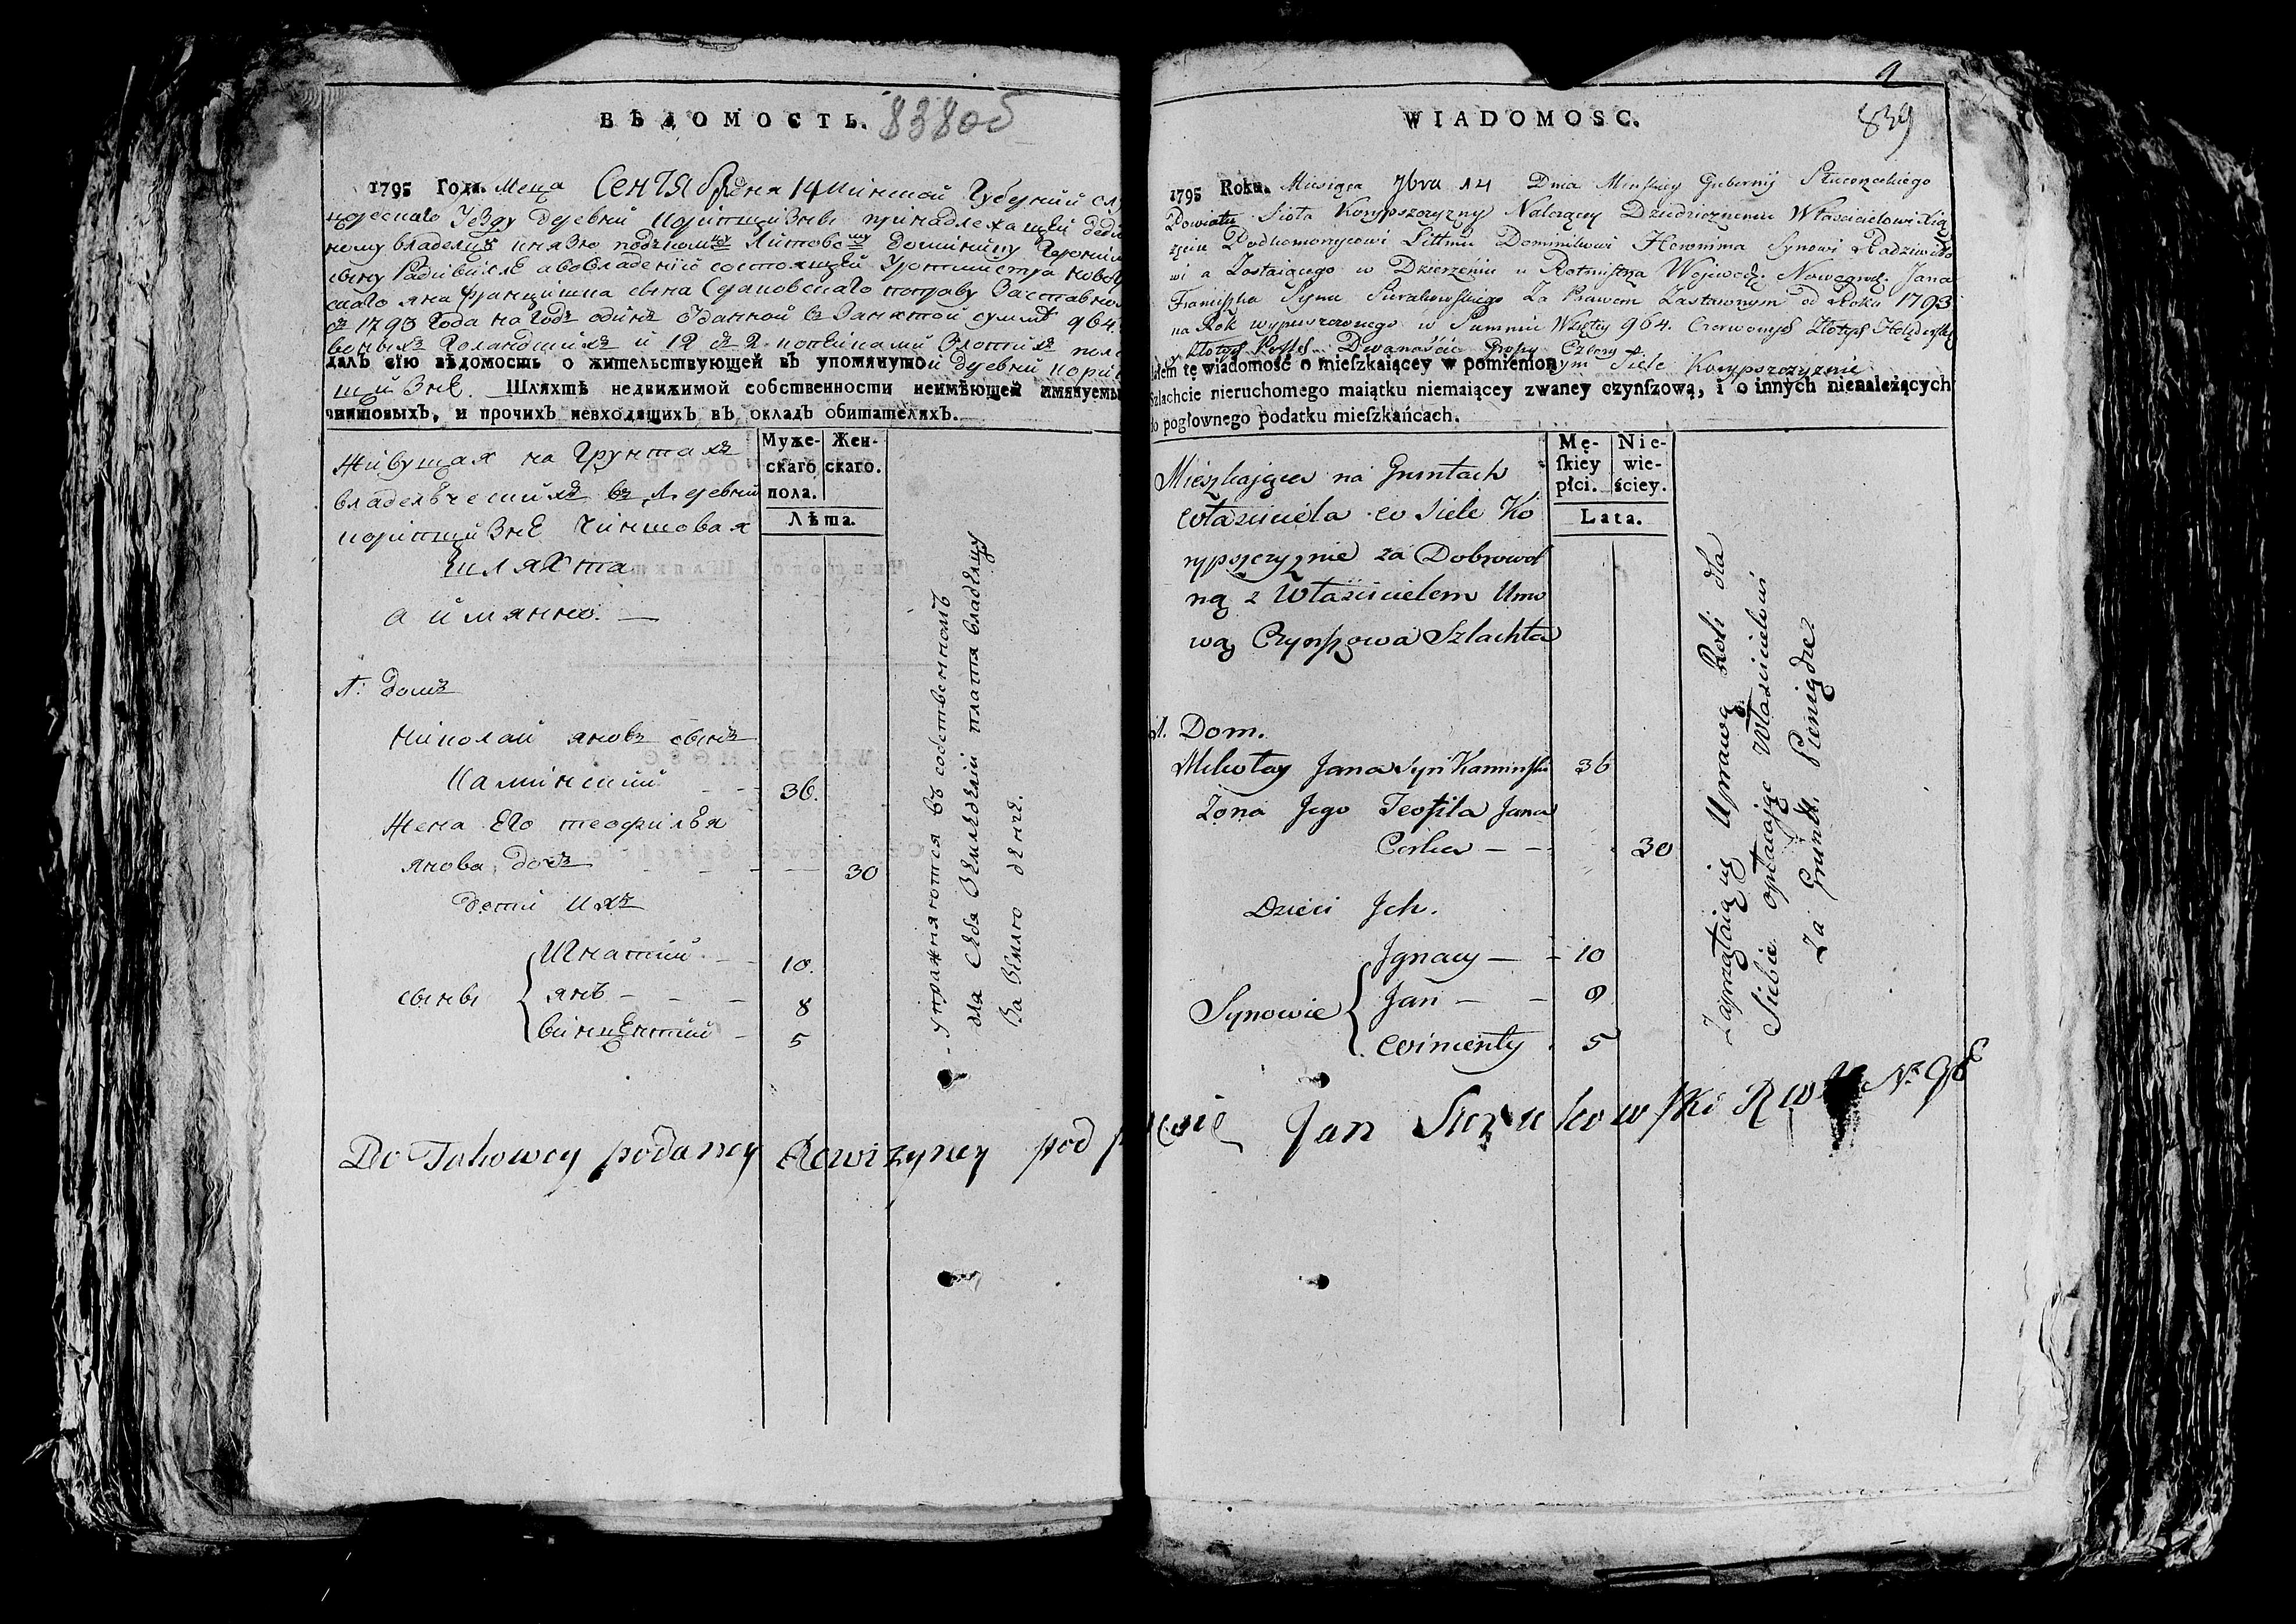 ВѢДОМОСТЬ. 838об
1795 Года. Меца Сентября дня 14 Минской Губерній
Уезду деревни принадлежащей
ному владелцу князю Литовско Доминику
сыну Радивилле а во владеніи состоящей Ротмистра
скаго Яна Францишка сына по праву заставно
1793 года на годъ одинъ в сумме 964
Голандскихъ и 12
далъ сїю вѣдомость о жительствующей въ упомянутой деревни
Шляхтѣ недвижимой собственности неимѣющей имянуемы
чиншовыхъ, и прочихъ невходящихъ въ окладъ обитателяхъ.
Живущая на Грунтахъ
владелческихъ въ деревни
чиншовая
шляхта
а имянно. —
Муже-
скаго
пола.
Жен-
скаго.
Лѣта.
1: домъ
Николай Яновъ сынъ
Каминский 36.
Жена Его теофилья
Янова дочь 30
дети ихъ
сыны
Игнатий 10.
янъ 8
винцентий 5
упражняются въ собственномъ
для себя земледелии платя владелцу
за землю денге.
Do Takowey podaney Rewizyney pod
9
WIADOMOSC. 839
1795 Roku. Miesiąca 7bra 14 Dnia Minskiey Gubernij Słuconeckiego
Powiatu Sioła Korypszczyzny Należącey Dziedzicznemu Właścicielowi Xią
żęciu Podkomorzemu Littmu Dominikowi Heronima Synowi Radziwiłło
wi a Zostaiącego w Dzierżeniu u Rotmistrza Wojewodz: Nowogrodz: Jana
Franciszka Syna Surakowskiego Za Prawem Zastawnym od Roku 1793
na Rok wypuszczonego w Summie Wziętey 964. Czerwonych Złotych
Złotych Dwanaście Groszy
ałem tę wiadomość o mieſzkaiącey w pomienionym Siele Korypszczyznie
Szlachcie nieruchomego maiątku niemaiącey zwaney czynſzową, i o innych nienależących
do pogłownego podatku mieſzkańcach.
Mieszkające na Gruntach
Właściciela w Siele Ko
rypszczyznie za Dobrowol
ną z Właścicielem Umo
wą Czynszowa Szlachta
Mę-
ſkiey
płci.
Nie-
wie-
ściey.
Lata.
1. Dom.
Mikołay Jana Syn Kaminski 36
Zona Jego Teofila Jana
Corka — — 30
Dzieci Jch.
Synowie
Jgnacy — 10
Jan — 8
Wincenty 5
Zaprzątaią się Uprawą Roli dla
Siebie opłacając Właścicielowi
Za Grunt Pieniądze
Jan Surakowski